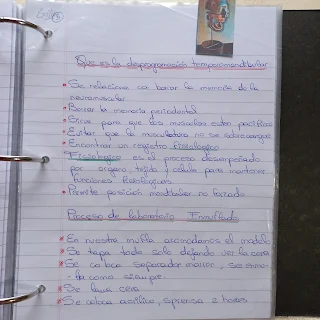 Que es la desprogramación temporomandibular
Se relaciona con borrar la memoria de la
neuromuscular
Borrar la memoria periodontal
Sirve para que los musculos esten pacificos
Evitar que la musculatura no se sobrecargue
Encontrar un registro fisiologico
Fisiologico es el proceso desempeñado
por organo tejido y celula para mantener
funciones fisiologicas
Permite posición mandibular no forzada
Proceso de laboratorio Enmuflado
En nuestra mufla acomodamos el modelo
Se tapa todo solo dejando ver la cera
Se coloca separador
ta como siempre
Se lava cera
Se coloca acrilico, sprensa 2 horas